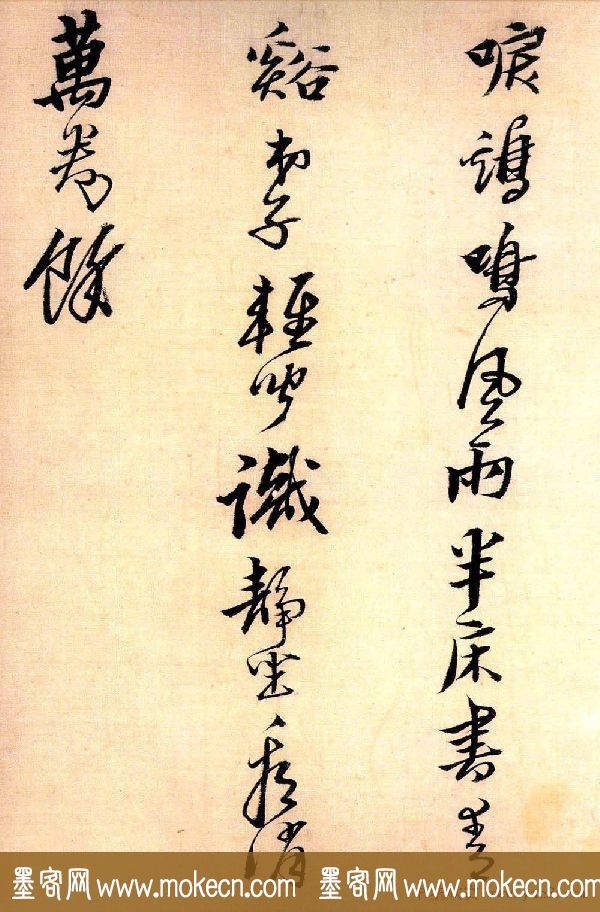 唳鳴風雨半床書青
谿子識靜坐消
萬卷餘
墨客网 www.mokecn.com 墨客网 www.mokecn.com